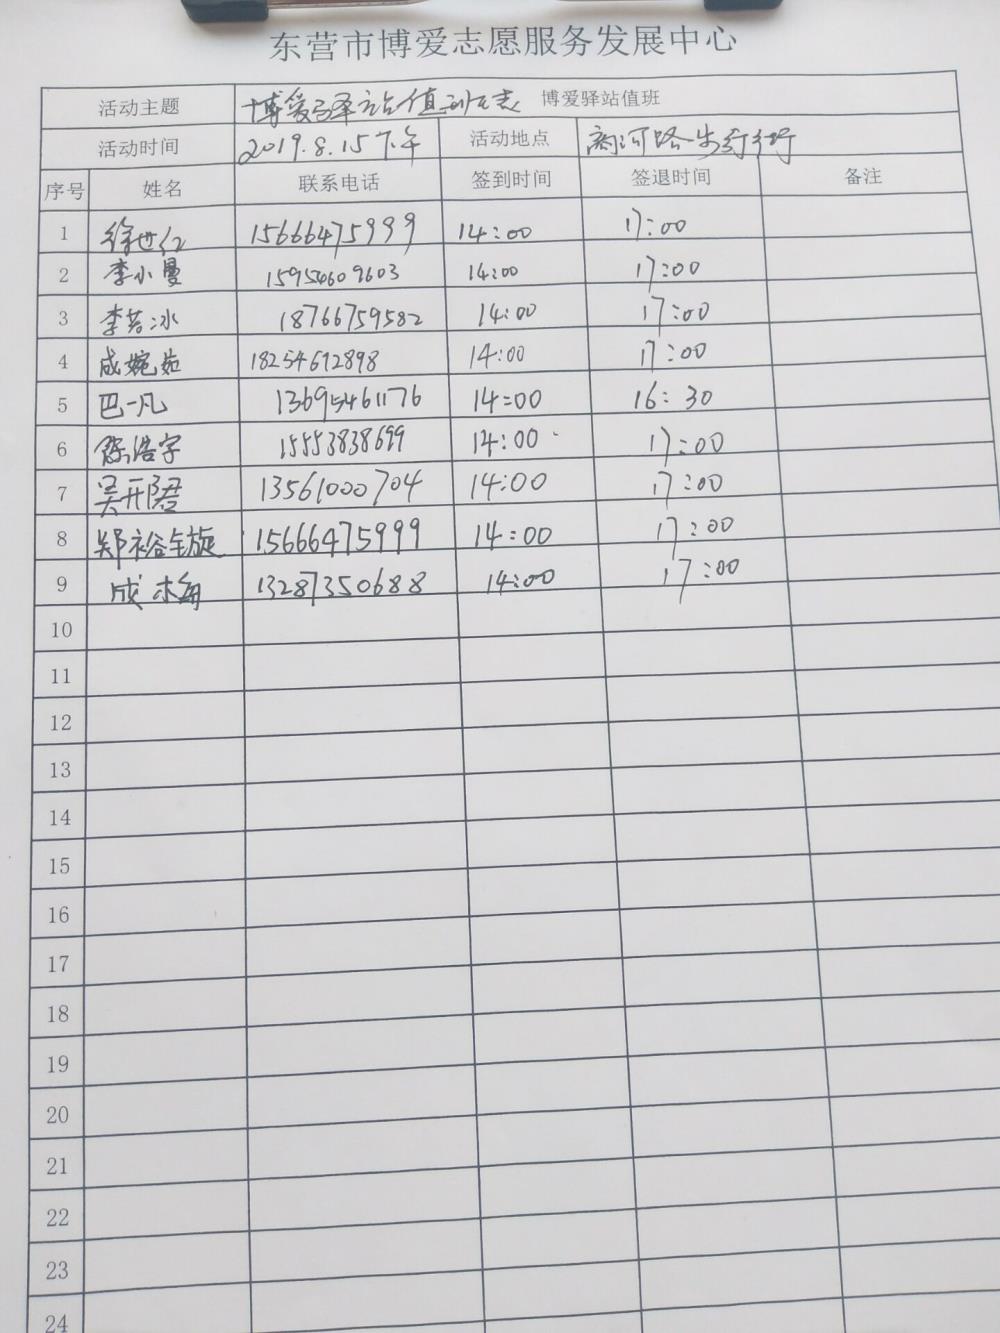 东营市博爱志愿服务发展中心
活动主题 博爱驿站值班表 博爱驿站值班
活动时间 2019.8.15下午 活动地点 商河路步行街
序号 姓名 联系电话 签到时间 签退时间 备注
1 徐世仁 15666475999 14:00 17:00
2 李小曼 15954609603 14:00 17:00
3 李若冰 18766759582 14:00 17:00
4 成婉茹 18254612898 14:00 17:00
5 巴一凡 13695461176 14:00 16:30
6 陈浩宇 15553838699 14:00 17:00
7 吴开熙 13561000704 14:00 17:00
8 郑裕旋 15666475999 14:00 17:00
9 成梅 13287350688 14:00 17:00
10
11
12
13
14
15
16
17
18
19
20
21
22
23
24